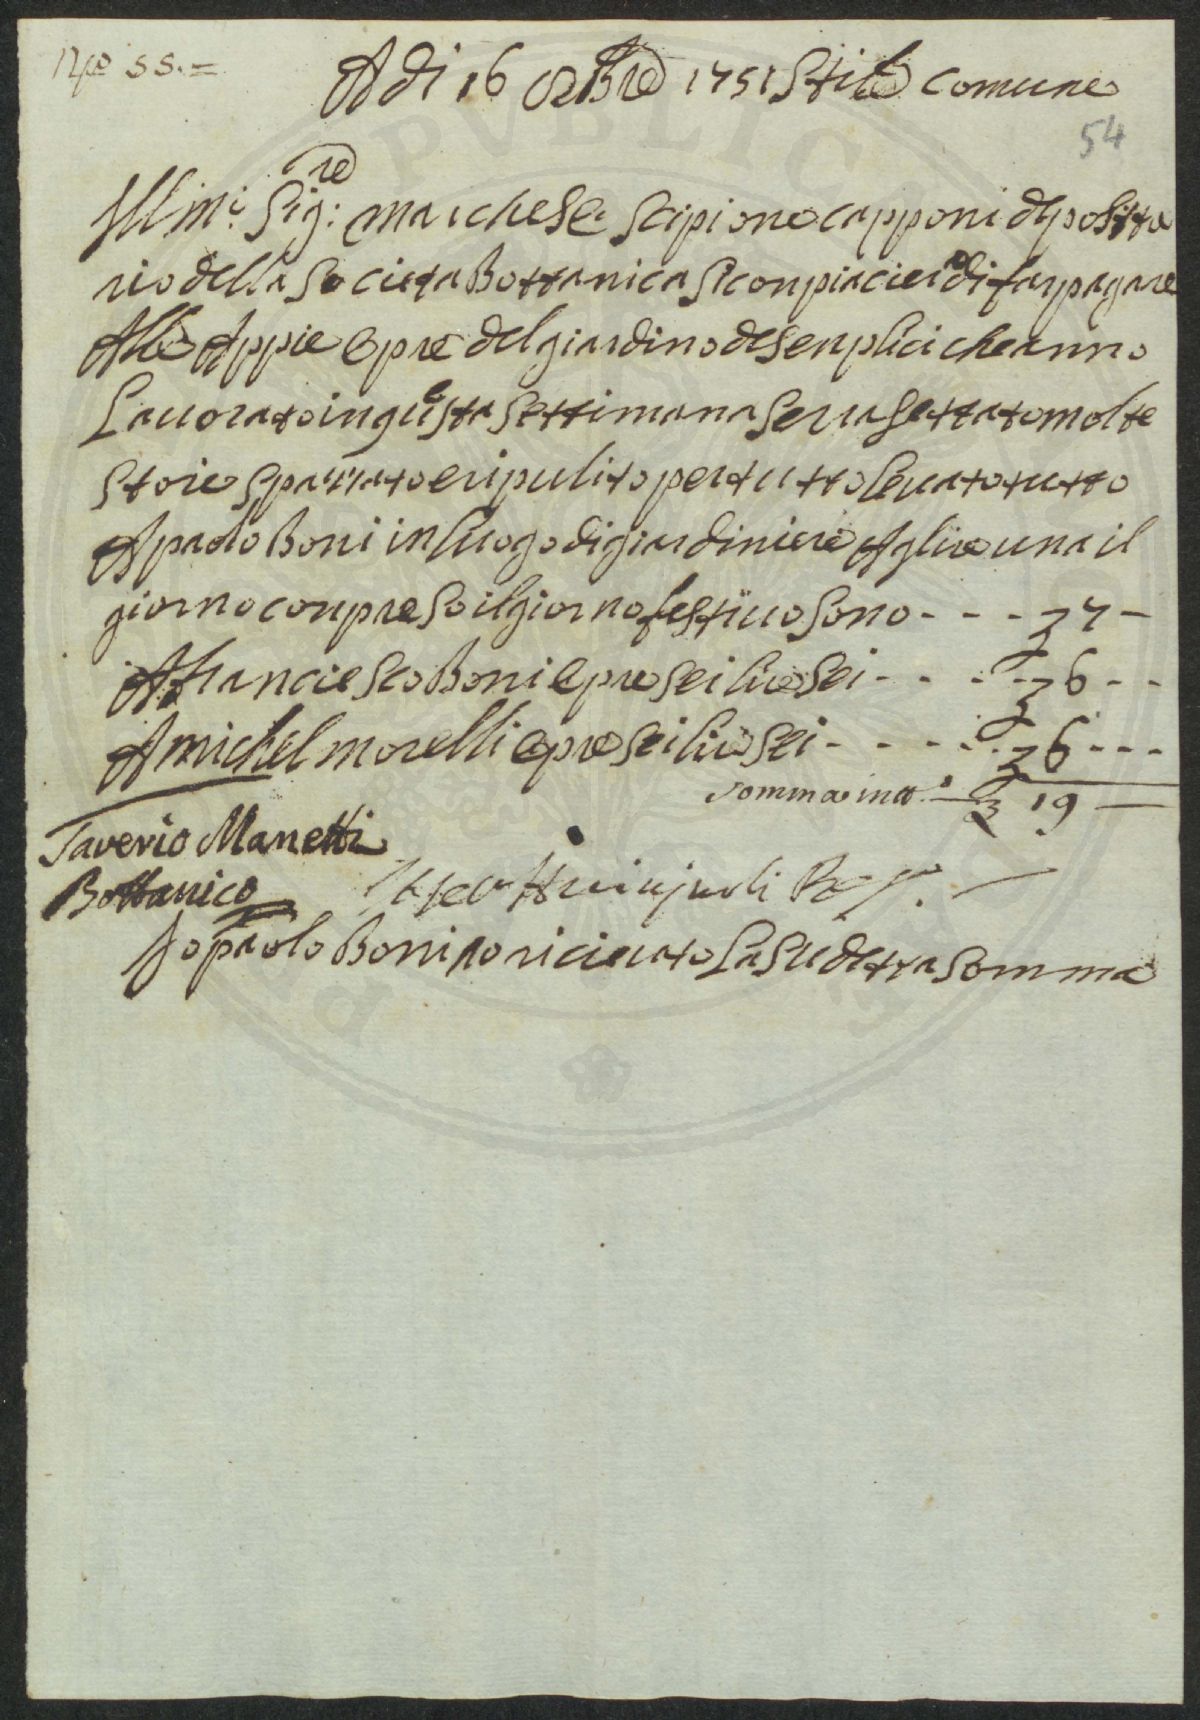 N.º 55. =
A di 16 8bre 1751 Stile Comune
54
Ill.mi Sig:re marchese Scipione capponi deposita
rio della Societa Bottanica Si conpiacier di far pagare
Alle Appie Opre del giardino de Senplici che anno
Lauorato in questa Settimana Seruasettato molte
Storie Sparrato e ripulito per tutto leuato tutto
A paolo Boni in luogo di giardiniere A lire una il
giorno conpreso il giorno festiuo Sono - - - £ 7 —
A franciesco Boni Opre sei lire sei - - - - £ 6 - -
A michel morelli opre sei lire sei - - - - - £ 6 - - -
Somma in tt.º — £ 19 —
Saverio Manetti
Bottanico
Io paolo Boni o riceuuto La Sudetta Somma
PVBLIC